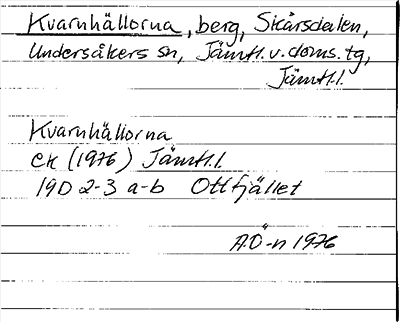 Kvarnhällorna, berg, Skårsdalen,
Undersåkers sn, Jämtl. v. doms. tg,
Jämtl. l.
Kvarnhällorna
EK (1976) Jämtl. l.
19D 2-3 a-b Ottfjället
A.Ö-n 1976